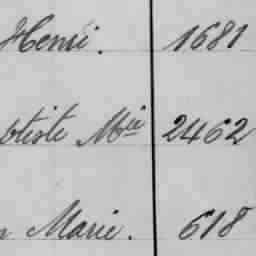 Henri. 1681
ptiste Mie 2462
n Marie. 618